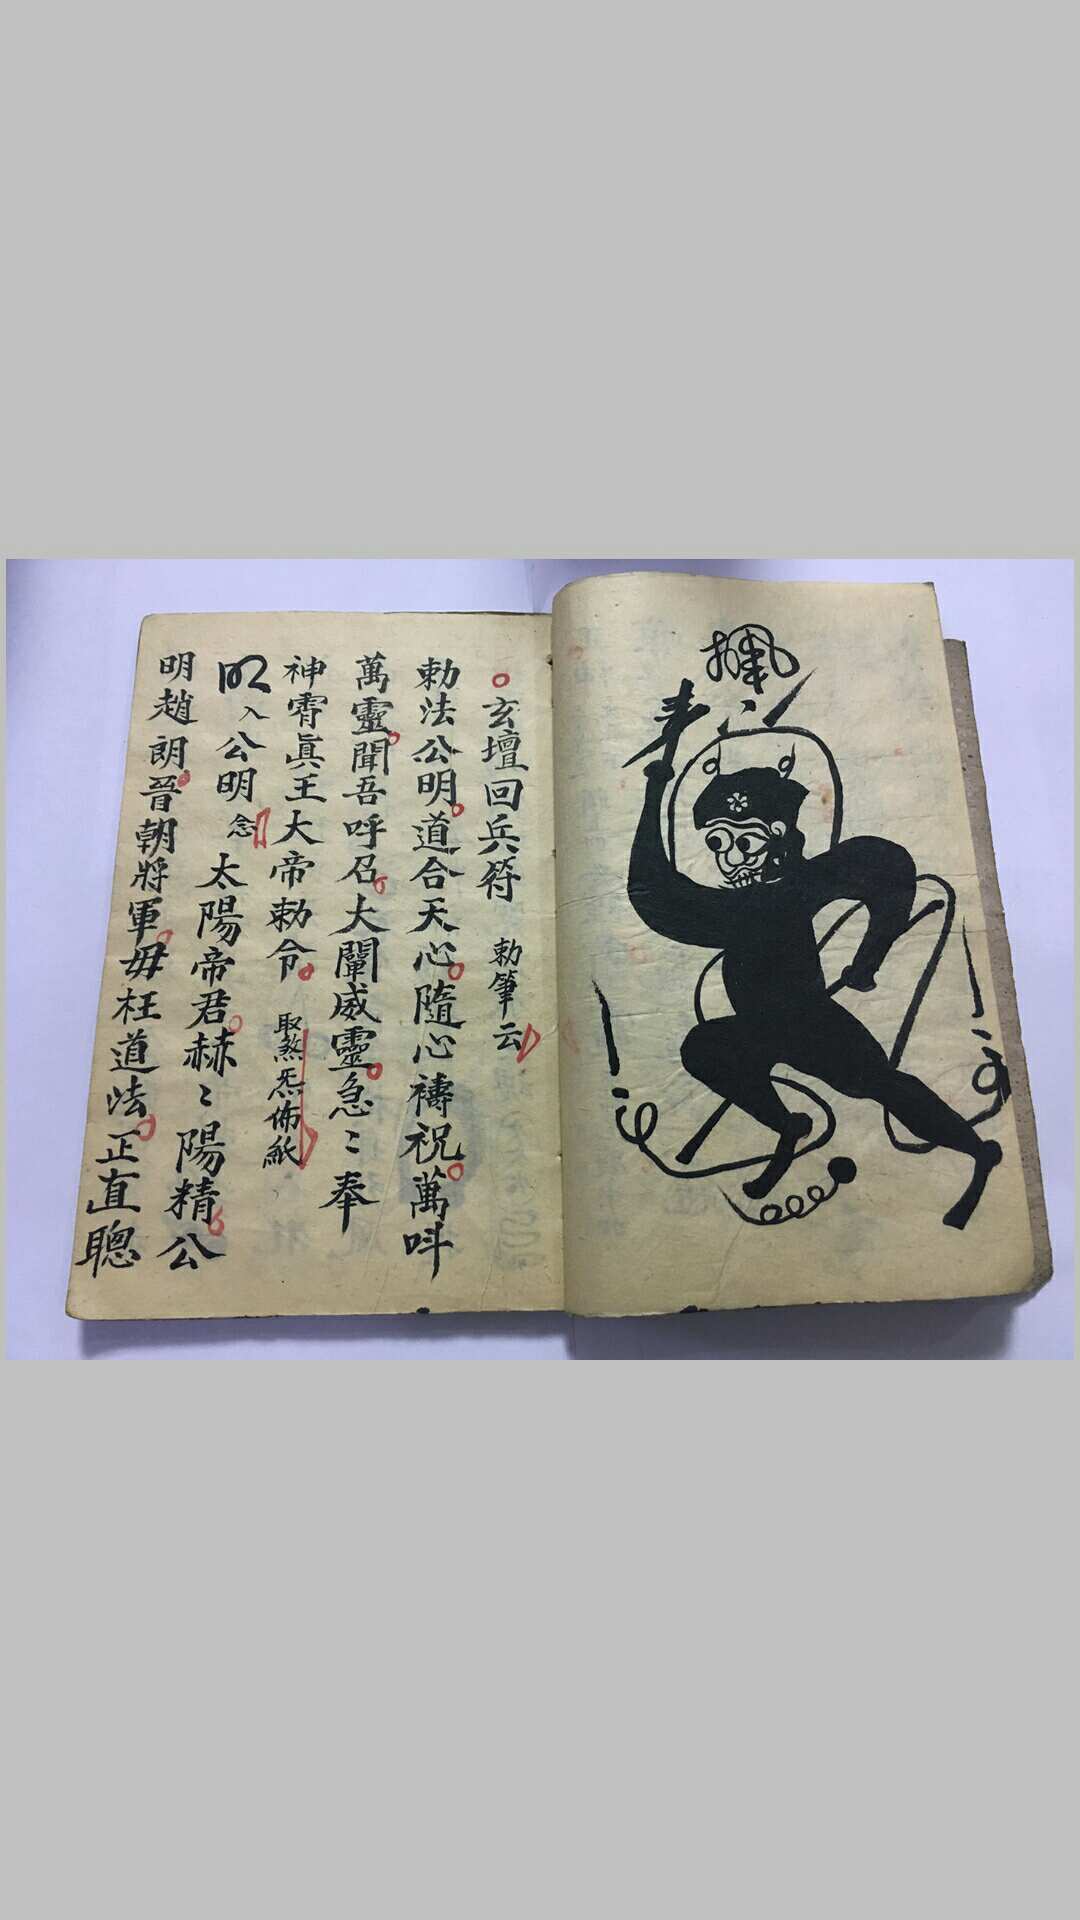 玄壇回兵符 勅筆云
勅法公明道合天心隨心禱祝萬呌
萬靈聞吾呼召大闡威靈急〻奉
神霄眞王大帝勅令 取煞炁佈紙
明入公明念太陽帝君赫〻陽精公
明趙朗晉朝將軍毋枉道法正直聰